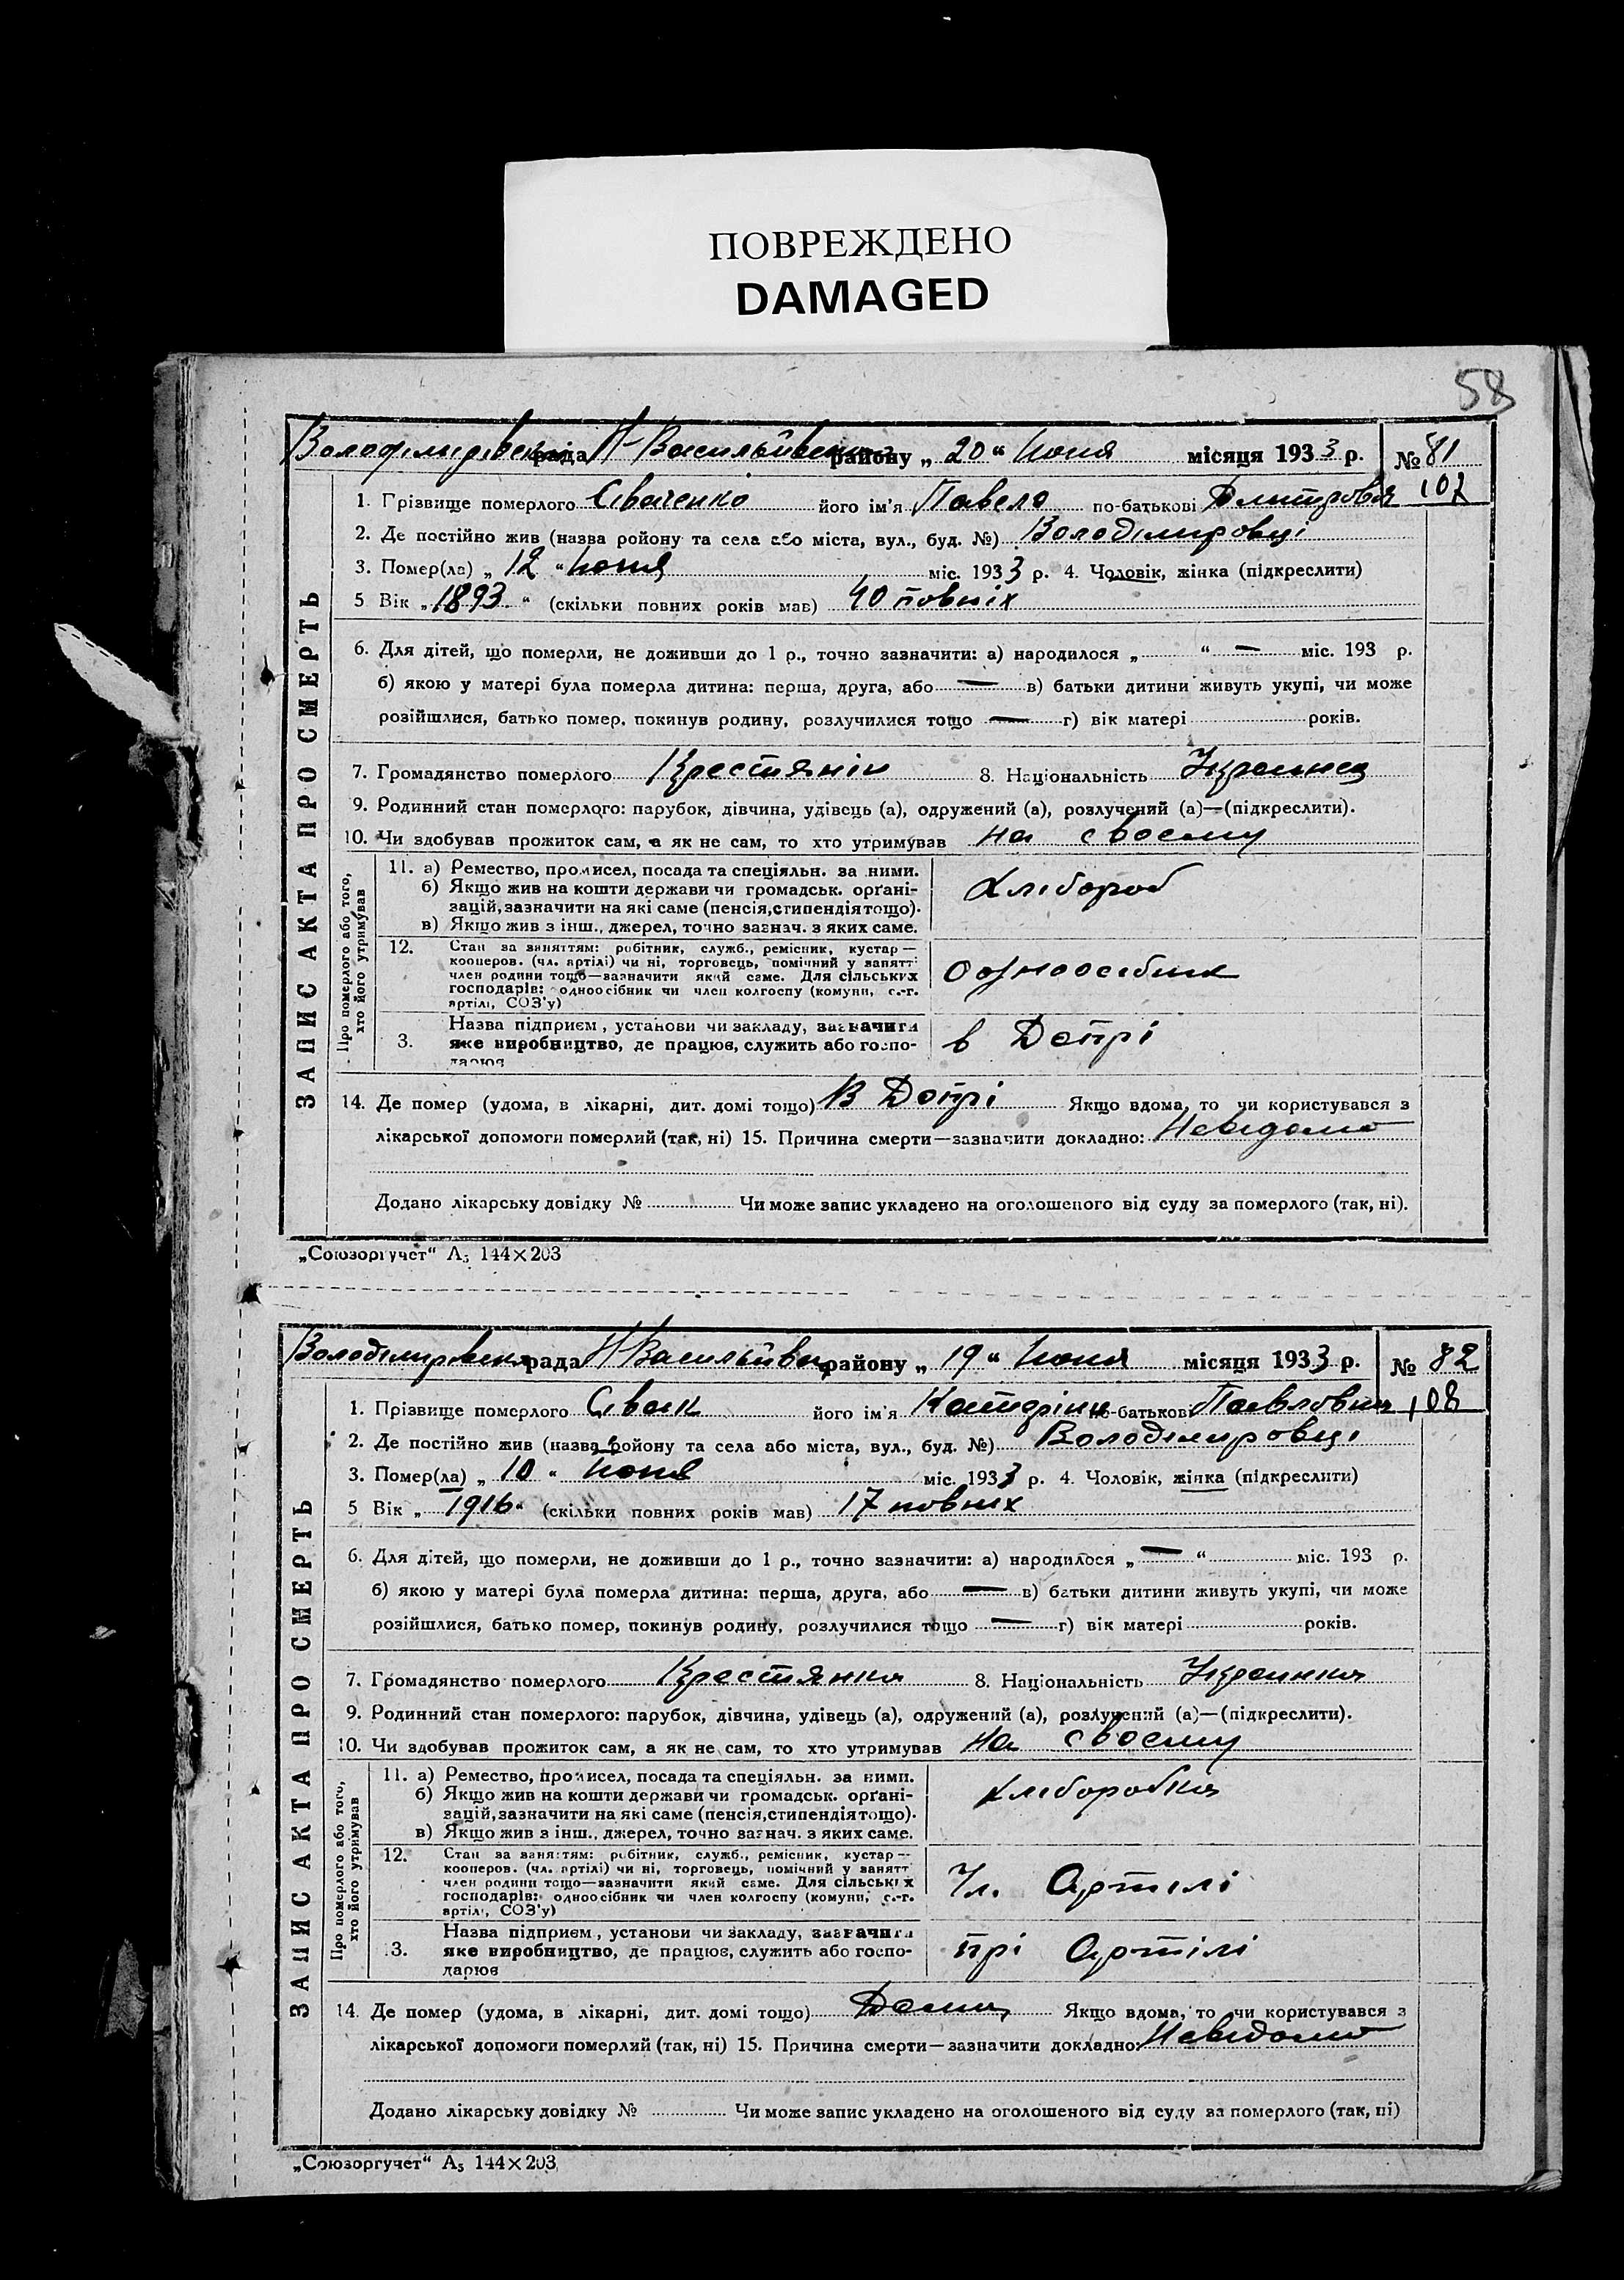 ПОВРЕЖДЕНО
DAMAGED
58
Володимірвська рада Н-Васильївського району „ 20 “ Июня місяця 1933 р. № 81
107
1. Грізвище померлого Сіваченко його ім'я Павело по-батькові Дмитрович
2. Де постійно жив (назва ройону та села або міста, вул., буд. №) Володімировці
3. Помер(ла) „ 12 “ июня міс. 1933 р. 4. Чоловік, жінка (підкреслити)
5 Вік „ 1893 “ (скільки повних років мав) 40 повніх
6. Для дітей, що померли, не доживши до 1 р., точно зазначити: а) народилося „ “ — міс. 193 р.
б) якою у матері була померла дитина: перша, друга, або — в) батьки дитини живуть укупі, чи може
розійшлися, батько помер, покинув родину, розлучилися тощо — г) вік матері років.
7. Громадянство померлого Крестянін 8. Національність Украинец
9. Родинний стан померлого: парубок, дівчина, удівець (а), одружений (а), розлучений (а)—(підкреслити).
10. Чи здобував прожиток сам, а як не сам, то хто утримував на своему
ЗАПИС АКТА ПРО СМЕРТЬ
Про померлого або того, хто його утримував
11. а) Ремество, промисел, посада та спеціяльн. за ними.
б) Якщо жив на кошти держави чи громадськ. органі-
зацій, зазначити на які саме (пенсія, стипендія тощо).
в) Якщо жив з інш., джерел, точно зазнач. з яких саме.
Хлібороб
12. Стан за заняттям: робітник, служб., ремісник, кустар—
кооперов. (чл. артілі) чи ні, торговець, помічний у занятті
член родини тощо—зазначити який саме. Для сільських
господарів: одноосібник чи член колгоспу (комуни, с.-г.
артілі, СОЗ'у)
Одноосебник
3. Назва підприєм, установи чи закладу, зазначити
яке виробництво, де працює, служить або госпо-
дарює
в Допрі
14. Де помер (удома, в лікарні, дит. домі тощо) В Допрі Якщо вдома, то чи користувався з
лікарської допомоги померлий (так, ні) 15. Причина смерти—зазначити докладно: Невідомо
Додано лікарську довідку № Чи може запис укладено на оголошеного від суду за померлого (так, ні).
„Союзоргучет“ А5 144×203
Володімірвська рада Н Васильївськ району „ 19 “ Июня місяця 1933 р. № 82
108
1. Прізвище померлого Сівак його ім'я Катеріна по-батькові Павловна
2. Де постійно жив (назва ройону та села або міста, вул., буд. №) Володімировці
3. Помер(ла) „ 10 “ июня міс. 1933 р. 4. Чоловік, жінка (підкреслити)
5 Вік „ 1916 “ (скільки повних років мав) 17 повних
6. Для дітей, що померли, не доживши до 1 р., точно зазначити: а) народилося „ — “ міс. 193 р.
б) якою у матері була померла дитина: перша, друга, або — в) батьки дитини живуть укупі, чи може
розійшлися, батько помер, покинув родину, розлучилися тощо — г) вік матері років.
7. Громадянство померлого Крестянка 8. Національність Украинка
9. Родинний стан померлого: парубок, дівчина, удівець (а), одружений (а), розлучений (а)—(підкреслити).
10. Чи здобував прожиток сам, а як не сам, то хто утримував на своему
ЗАПИС АКТА ПРО СМЕРТЬ
Про померлого або того, хто його утримував
11. а) Ремество, промисел, посада та спеціяльн. за ними.
б) Якщо жив на кошти держави чи громадськ. органі-
зацій, зазначити на які саме (пенсія, стипендія тощо).
в) Якщо жив з інш., джерел, точно зазнач. з яких саме.
хлеборобка
12. Стан за заняттям: робітник, служб., ремісник, кустар—
кооперов. (чл. артілі) чи ні, торговець, помічний у занятт
член родини тощо—зазначити який саме. Для сільських
господарів: одноосібник чи член колгоспу (комуни, с.-г.
артілі, СОЗ'у)
Чл. Артілі
3. Назва підприєм, установи чи закладу, зазначити
яке виробництво, де працює, служить або госпо-
дарює
прі Артілі
14. Де помер (удома, в лікарні, дит. домі тощо) Дома Якщо вдома, то чи користувався з
лікарської допомоги померлий (так, ні) 15. Причина смерти—зазначити докладно: Невідомо
Додано лікарську довідку № Чи може запис укладено на оголошеного від суду за померлого (так, ні)
„Союзоргучет“ А5 144×203